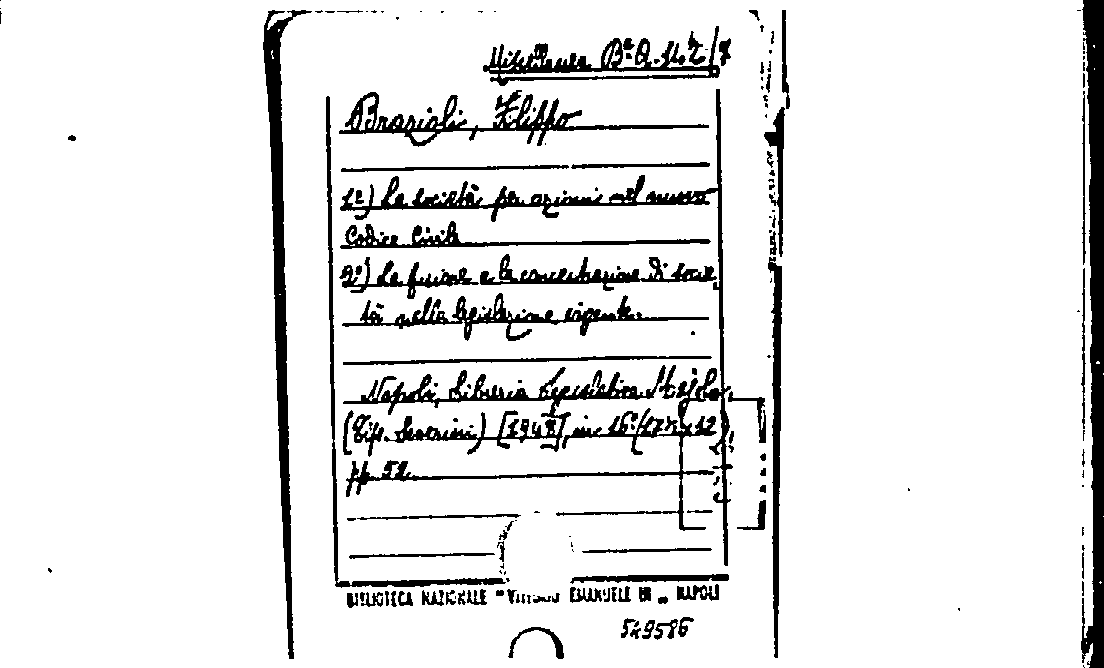 Miscellanea Bª Q. 142/7
Brazioli, Filippo
1º) La società per azioni nel nuovo
Codice Civile
2º) La fusione e la concentrazione di socie
tà nella legislazione vigente.
Napoli, Libreria Legislativa Majolo,
(Tip. Severini) [194], in-16º(17½x12),
pp. 52
BIBLIOTECA NAZIONALE "VITTORIO EMANUELE III" NAPOLI
549586